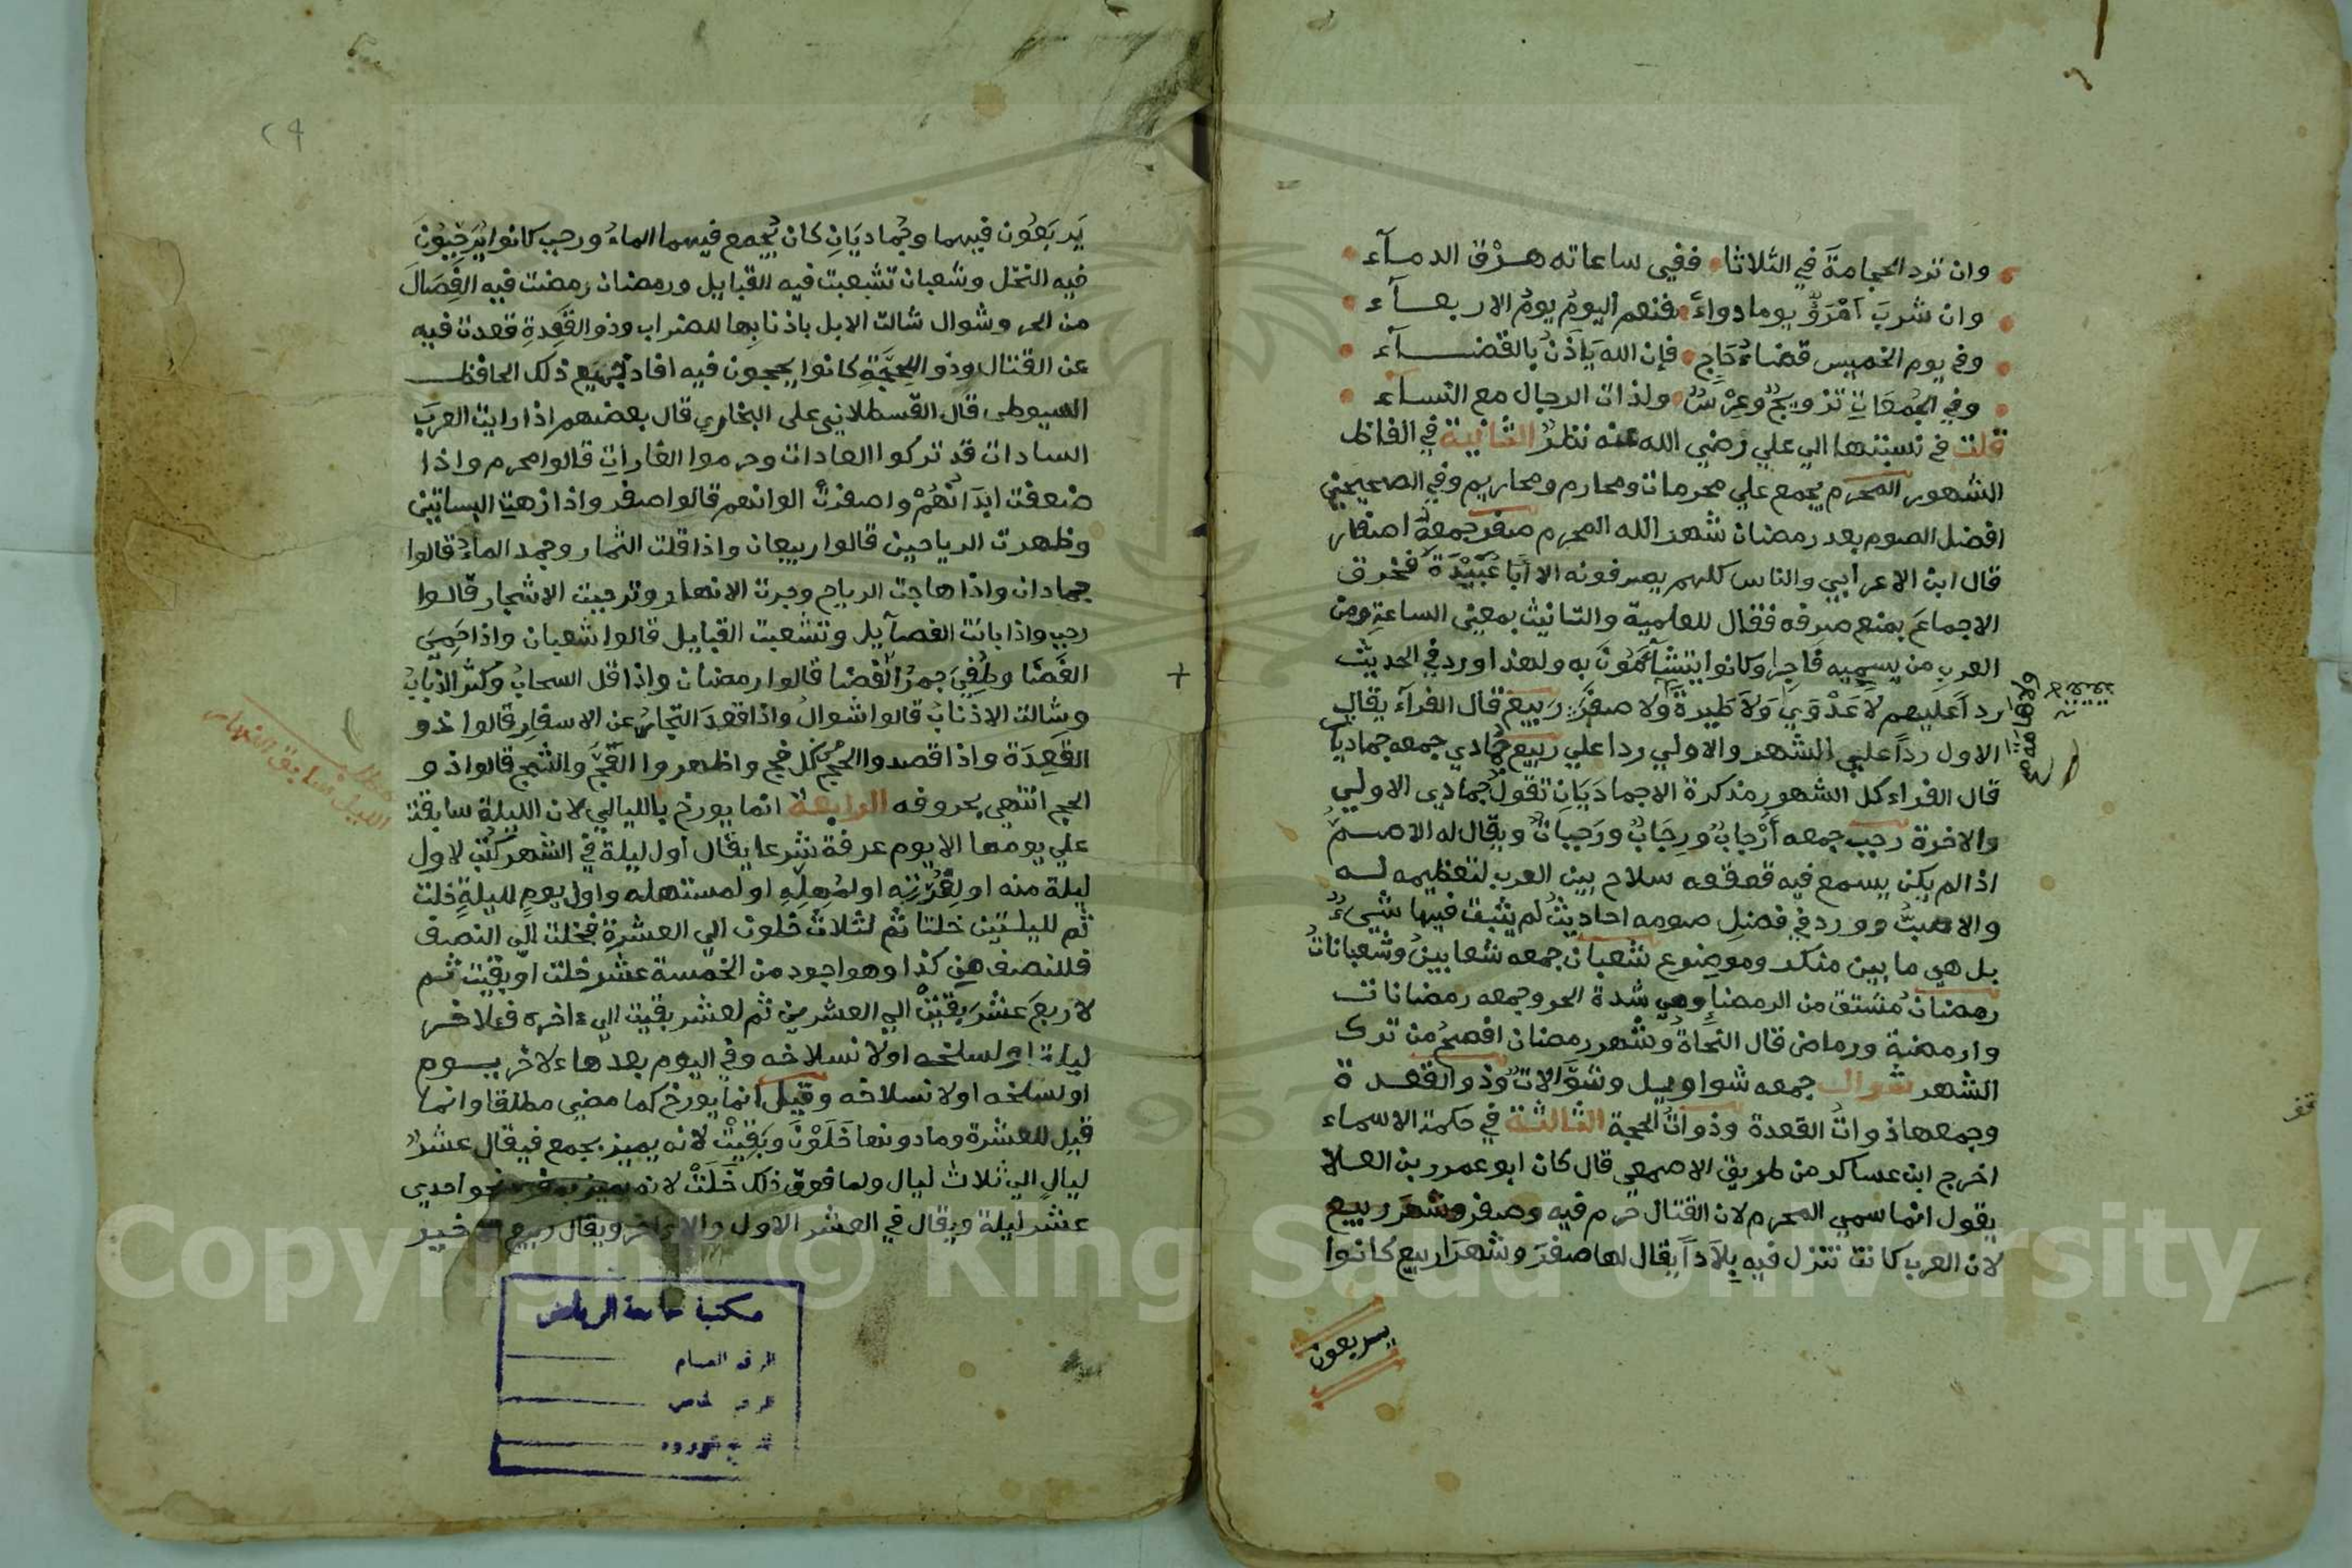 وان ترد الحجامةَ في الثلاثا ففي ساعاته هرْق الدمآء
وان شربَ آمْرَؤٌ يوما دواءً فنعم اليومُ يومُ الاربعآء
وفي يوم الخميس قضاءُ حَاجٍ فإن الله يَأذَنُ بالقضآء
وفي الجُمعَاتِ تزويجٌ وعِرْسٌ ولذات الرجال مع النسآء
قلت في نسبتها الي علي رضي الله عنه نظرٌ الثانية في الفاظ
الشهور المحرم يجمع علي محرمات ومحارم ومحاريم وفي الصحيحين
افضل الصوم بعد رمضان شهر الله المحرم صفر جمعهُ اصفار
قال ابن الاعرابي والناس كلهم يصرفونه الا أبَا عُبَيْدَةَ فخرق
الاجماعَ بمنع صرفه فقال للعلمية والتانيث بمعني الساعةِ ومن
العرب من يسميه ناجرا وكانوا يتشآئمُونَ به ولهذا ورد في الحديث
رداً عليهم لاَ عَدْوَي وَلاَ طَيرةَ ولا صفَرَ ربيع قال الفرآء يقال
الاول رداً علي الشهر والاولي ردا علي ربيع جُمادي جمعه جماديات
قال الفراء كل الشهورِ مذكرة الا جمادَيَانِ تقول جُمادي الاولي
والاخرة رجب جمعه أرْجابٌ ورِجَابٌ ورَجباتٌ ويقال له الاصمُّ
اذ الم يكن يسمع فيه قعقعه سلاح بين العرب لتعظيمه له
والاصبُّ وورد في فضلِ صومه احاديثُ لم يثبت فيها شيءٌ
بل هي ما بين منكر وموضوع شعبان جمعه شعابينُ وشعباناتُ
رمضان مُشتق من الرمضاءِ وهي شدة الحر وجمعه رمضانات
وارمضة ورماض قال النحاةُ وشهر رمضان افصحُ من ترك
الشهر شوال جمعه شواويل وشوَّالاتٌ وذو القعدة
وجمعها ذواتُ القعدة وذواتُ الحجة الثالثة في حكمة الاسماء
اخرج ابن عساكر من طريق الاصمعي قال كان ابو عمرو بن العلا
يقول انما سمي المحرم لان القتال حُرم فيه وصفر وشهر ربيع
لان العرب كانت تنزل فيه بِلاَداً يقال لها صفرَ وشهرَا ربيع كانوا
يربعون
يَربَعُون فيهما وجُماديَانِ كان يُجمع فيهما الماءُ ورجب كانوا يُرَجِّبُونَ
فيه النخل وشعبان تشعبت فيه القبايل ورمضان رمضت فيه الفِصَالَ
من الحر وشوال شالت الابل باذنابِها للضراب وذو القَعدةِ قعدت فيه
عن القتال وذو الحِجَّةِ كانوا يحجون فيه افاد جميع ذلك الحافظ
السيوطي قال القسطلاني على البخاري قال بعضهم اذا رايت العربَ
السادات قد تركوا العادات وحرموا الغاراتِ قالوا محرم واذا
ضعفت ابدَانُهُمْ واصفرتْ الوانهم قالوا صفر واذا زهت البساتين
وظهرت الرياحين قالوا ربيعان واذا قلت الثمار وجمد الماءُ قالوا
جمادان واذا هاجت الرياح وجرت الانهار وترجبت الاشجار قالوا
رجب واذا بانت الفصآيل وتشعبت القبايل قالوا شعبان واذا حَمِيَ
الفَضَا وطُفِيَ جمرُ الغضا قالوا رمضان واذا قل السحابُ وكثر الذبابُ
وشالت الاذنابُ قالوا شوالُ واذا قعدَ التجارُ عن الاسفارِ قالوا ذو
القعِدَة واذا قصدوا الحجَّ من كل فج واظهروا العَجَّ والثج قالوا ذو
الحج انتهي بحروفه الرابعة انما يورخ بالليالي لان الليلة سابقة
علي يومها الا يوم عرفة شرعا يقال اول ليلة في الشهر كُتب لاول
ليلة منه او لِغُرَّتِهِ او لمُهِلِّهِ او لمستهله واول يومٍ لليلةٍ خلت
ثم لليلتين خلتا ثم لثلاث خلون الي العشرة فخلت الي النصف
فللنصف من كذا وهو اجود من الخمسة عشر خلت او بقيت ثم
لاربعَ عشْرَ بقيَتْ الي العشرين ثم لعشر بقيت الي ءاخره فءلاخر
ليلة او لسلخه او لانسلاخه وفي اليوم بعدها ءلاخر يوم
او لسلخه او لانسلاخه وقيل انما يورخ كما مضي مطلقا وانما
قيل للعشرة وما دونها خَلَوْنَ وبَقِيْنَ لانه يميز بجمع فيقال عشرُ
ليال الي ثلاث ليال ولما فوق ذلك خَلَتْ لانه يميز بمفرد نحو احدي
عشر ليلة ويقال في العشر الاول والاواخر ويقال ربيع الاخير
مطلب
الليل سابق النهار
مكتبة جامعة الرياض
الرقم العام
الرقم الخاص
Copyright © King Saud University
1957